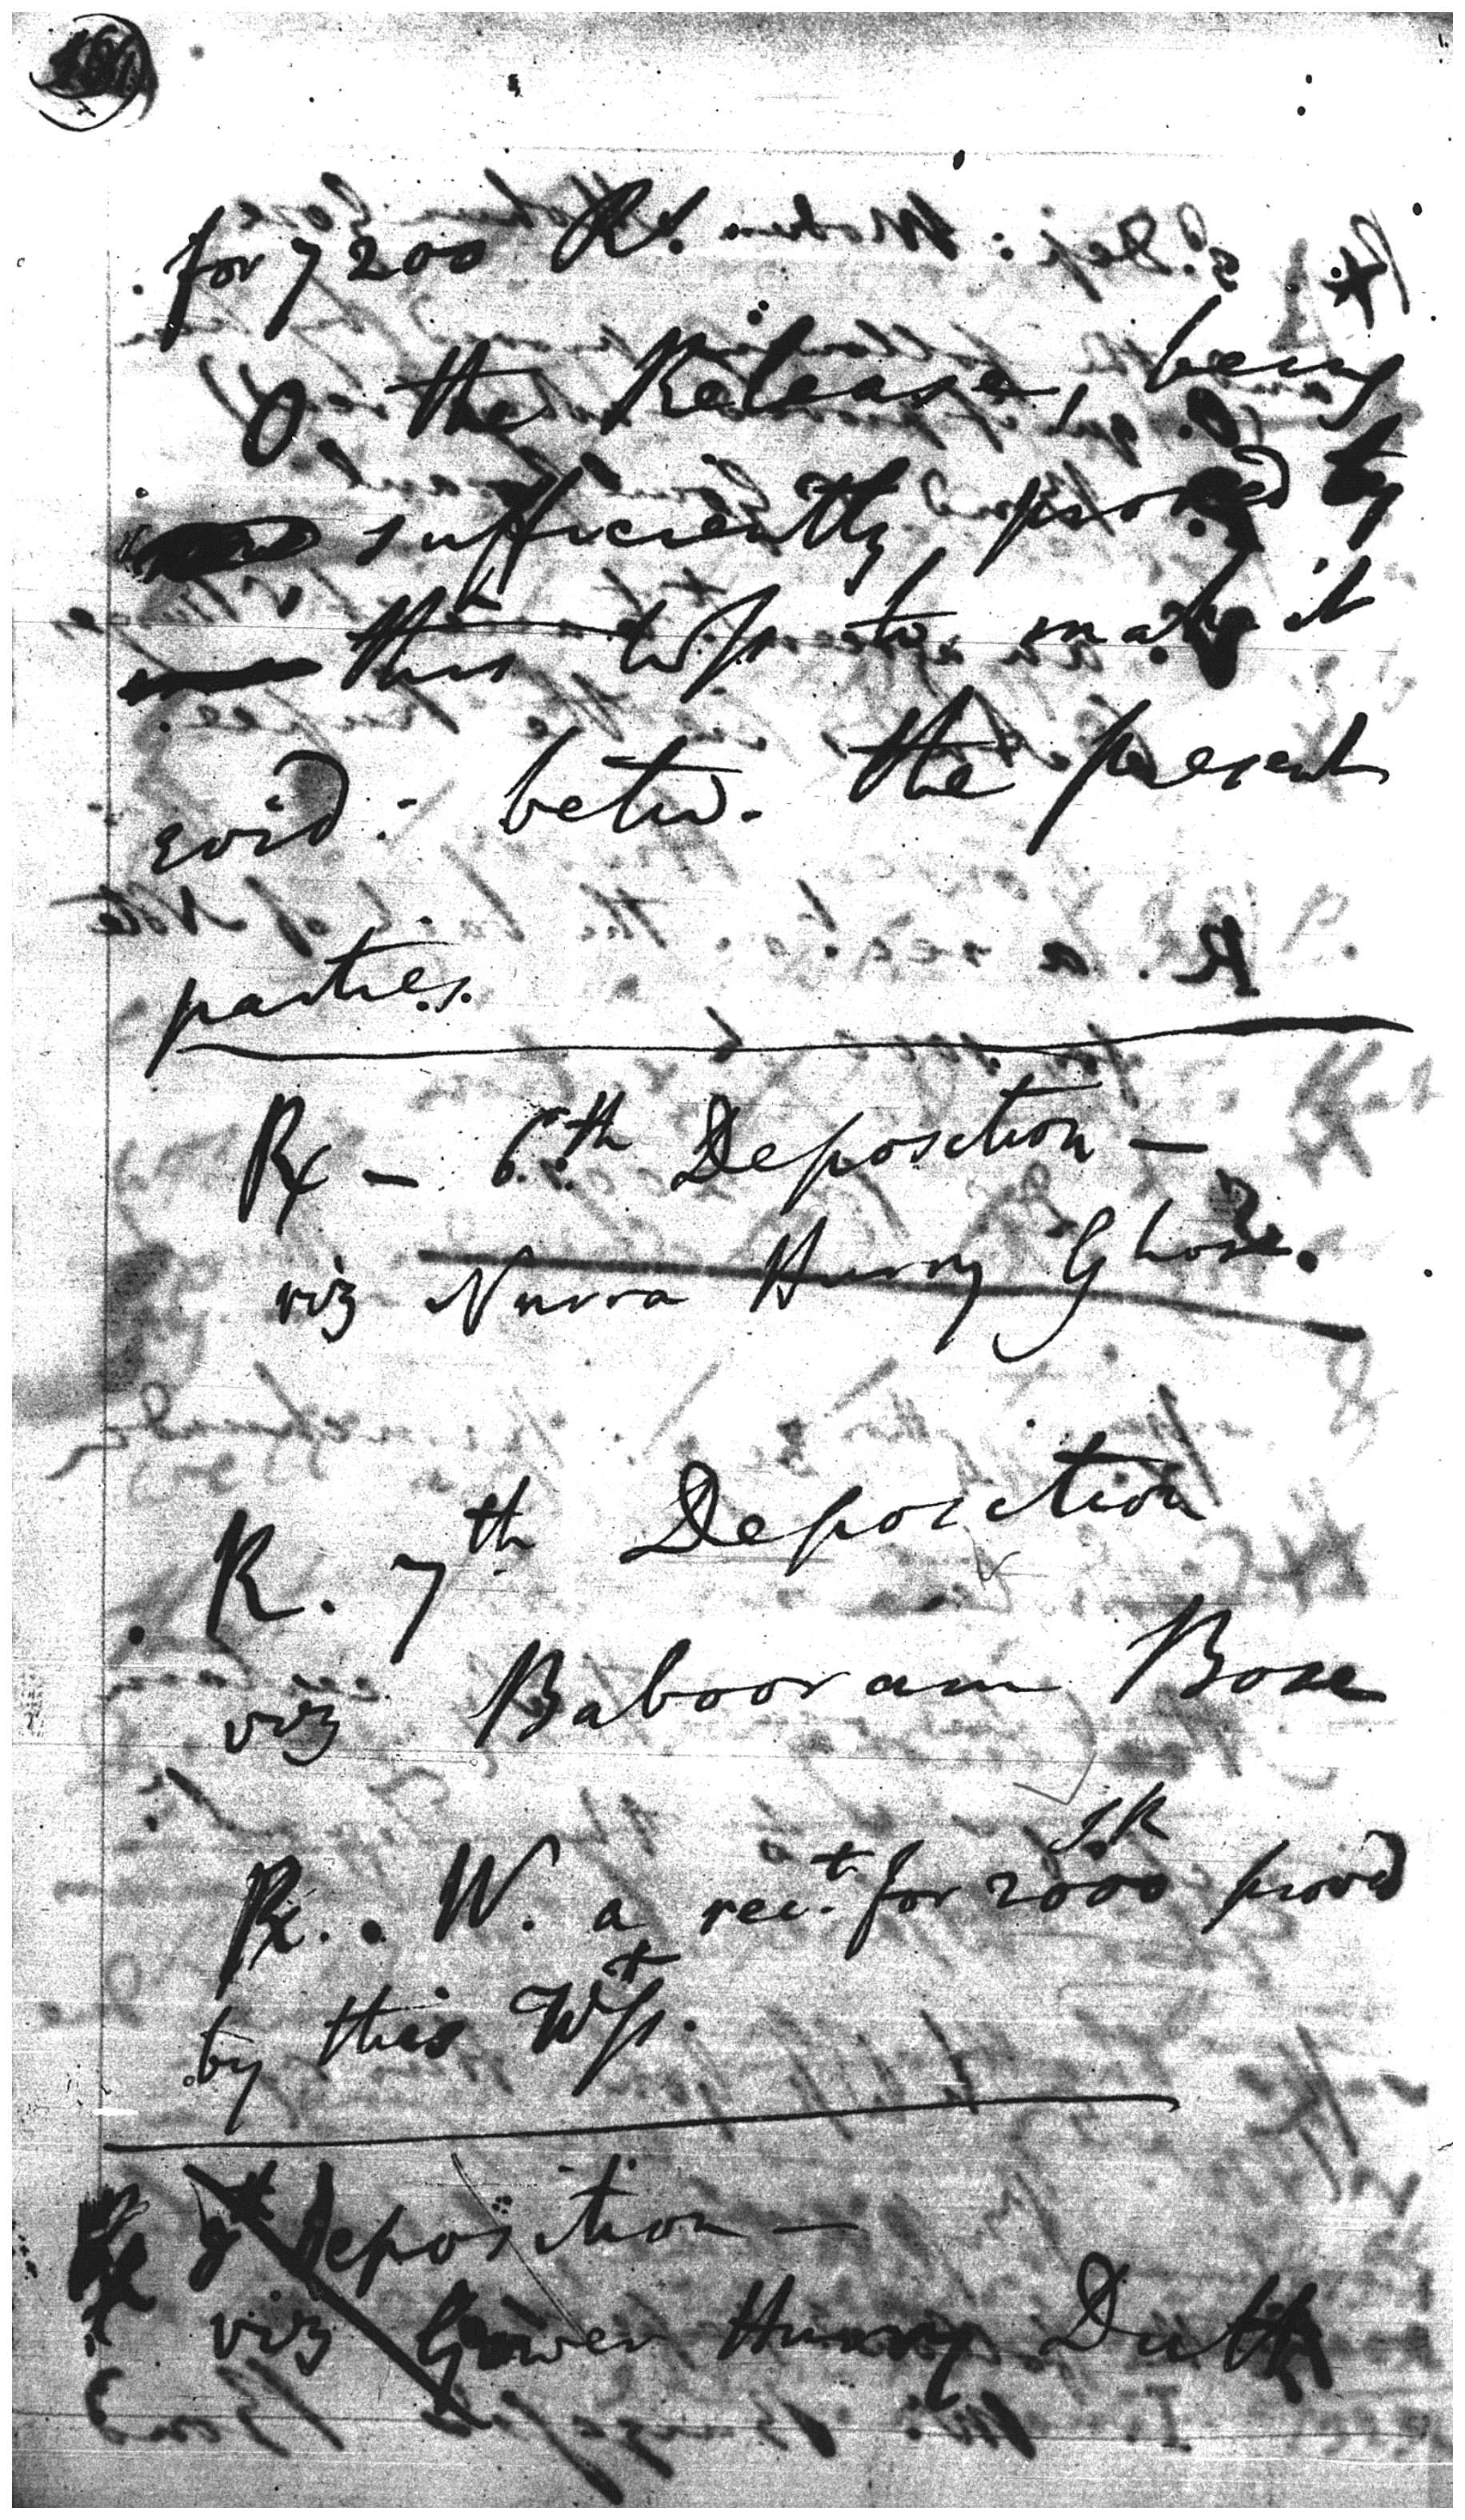 for 7200 Rs.
O. the Release, being
sufficiently proved by
this Wss. to make it
evid: betw. the present
parties.
Rx - 6.th Deposition -
viz Nurra Hurry Ghose.
R. 7th Deposition
viz Babooram Bose
SR
Rx. W. a rect. for 2000 proved
by this Wss.
8th Deposition -
viz Gower Hurry Dutt